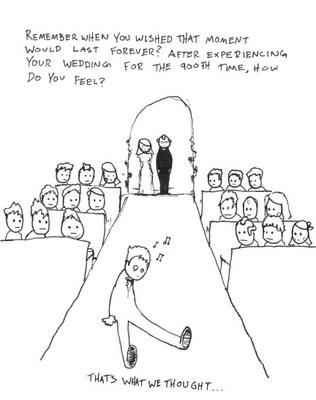 REMEMBER WHEN YOU WISHED THAT MOMENT
WOULD LAST FOREVER? AFTER EXPERIENCING
YOUR WEDDING FOR THE 900TH TIME, HOW
DO YOU FEEL?
THATS WHAT WE THOUGHT...